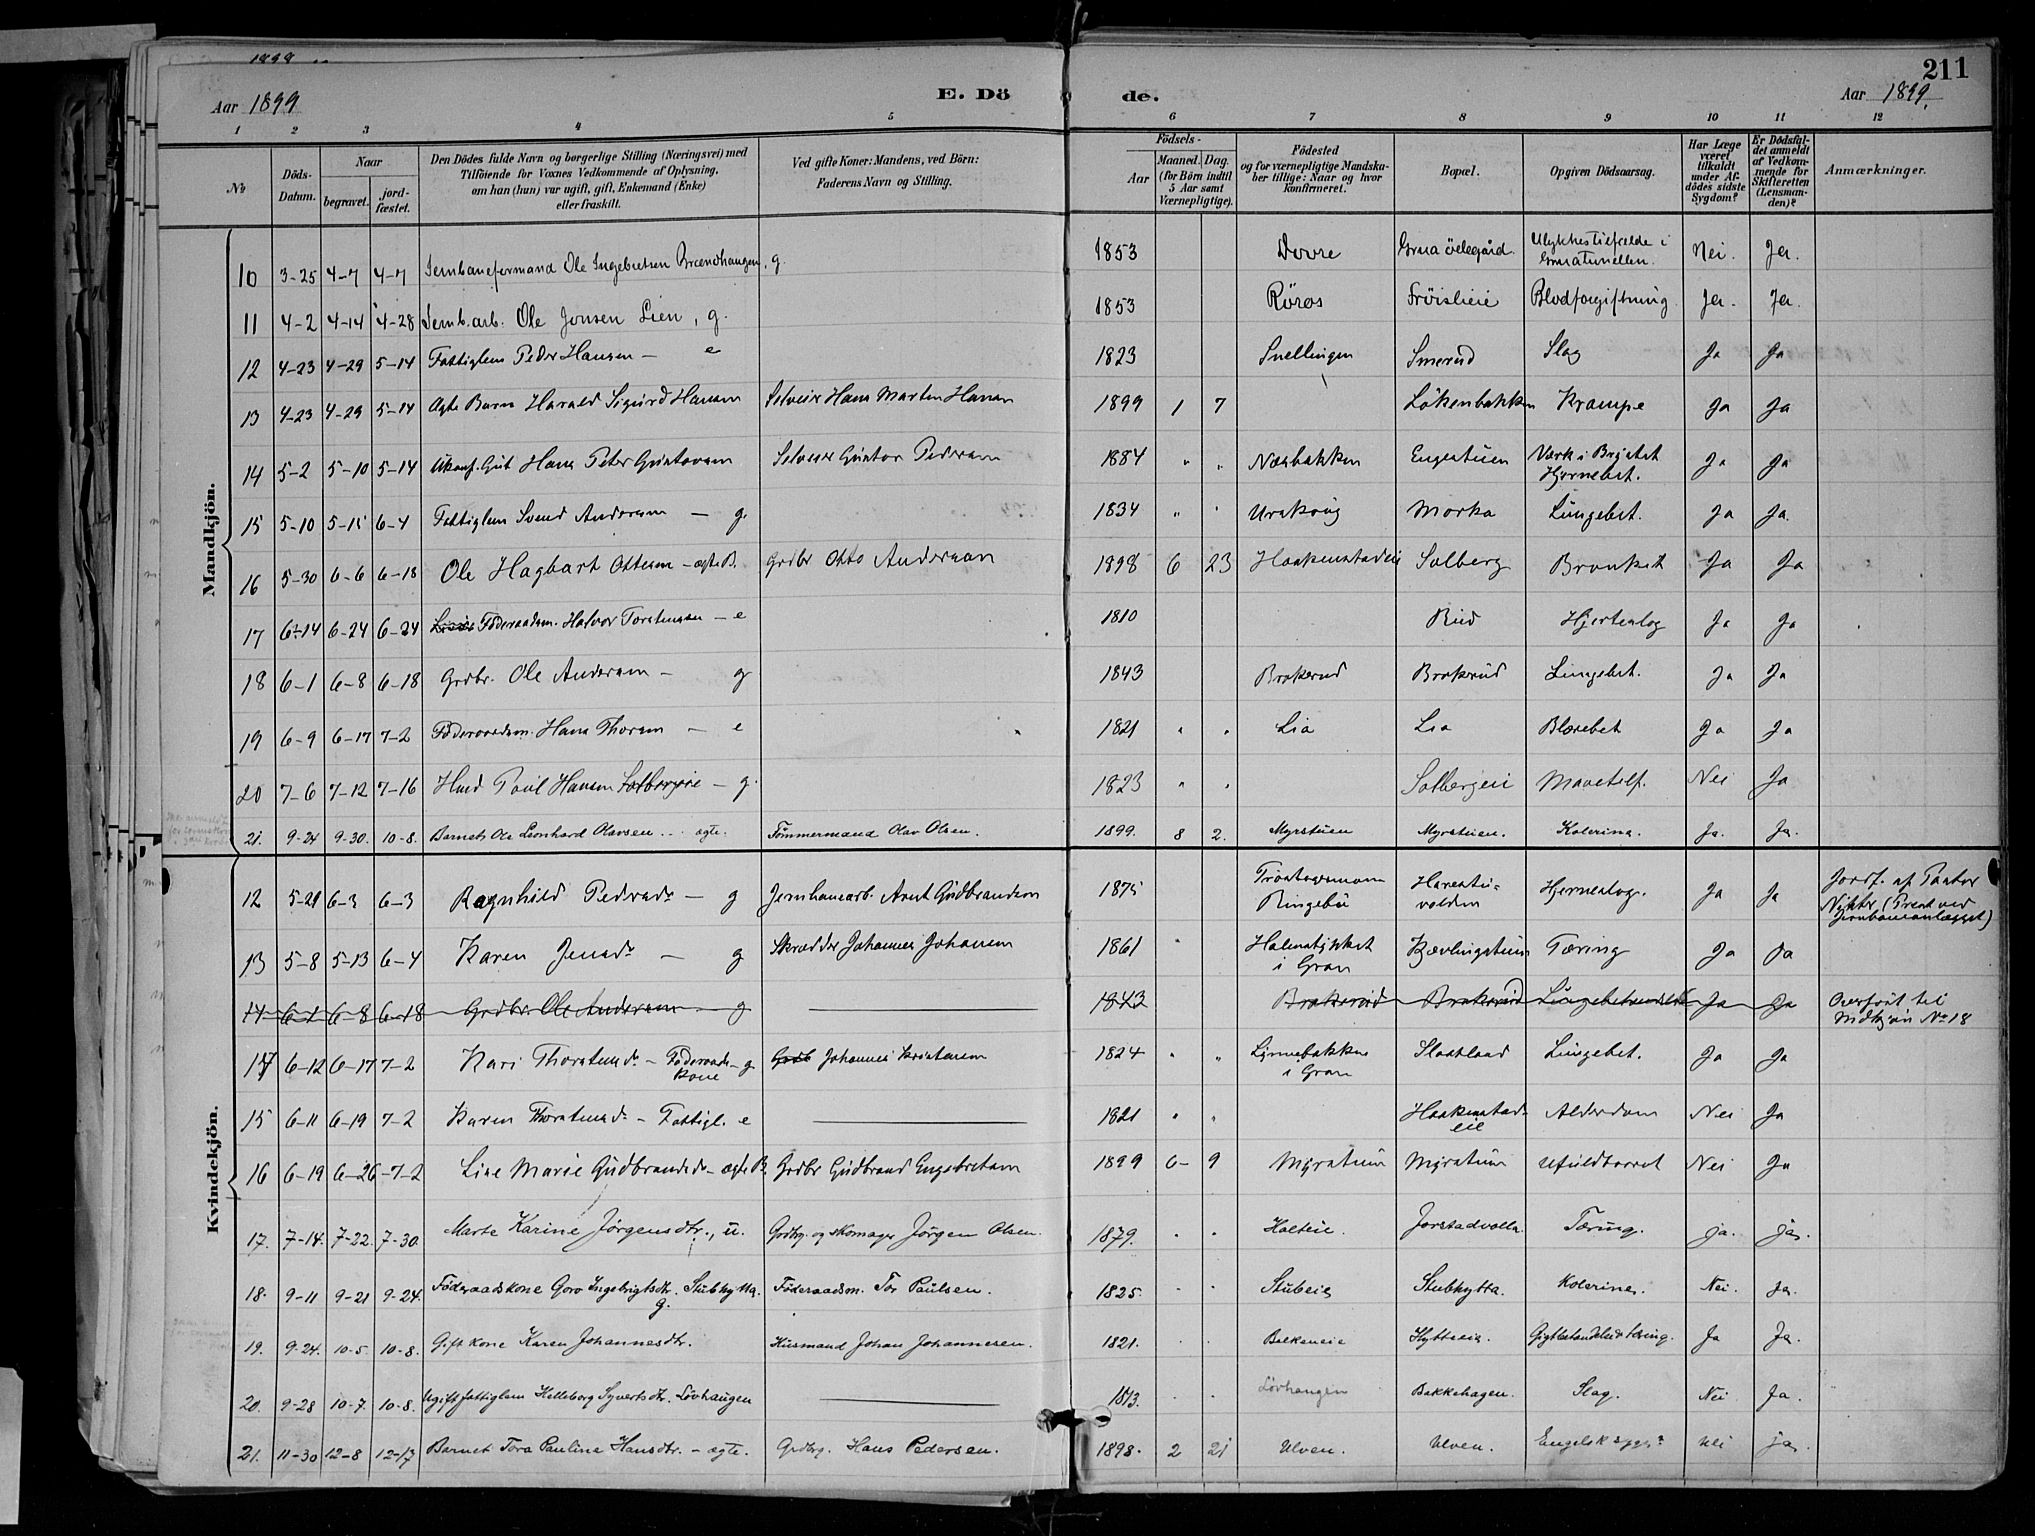 211
Aar 1899
E. Döde.
Aar 1899.
1 2 3 4 5 6 7 8 9 10 11 12
No
Döds-Datum.
Naar begravet. jordfæstet.
Den Dödes fulde Navn og borgerlige Stilling (Næringsvei) med Tilföiende for Voxnes Vedkommende af Oplysning, om han (hun) var ugift, gift, Enkemand (Enke) eller fraskilt.
Ved gifte Koner: Mandens, ved Börn: Faderens Navn og Stilling.
Födsels-
Aar Maaned. Dag. (for Börn indtil 5 Aar samt Værnepligtige).
Födested og for værnepligtige Mandskaber tillige: Naar og hvor konfirmeret.
Bopæl.
Opgiven Dödsaarsag.
Har Læge været tilkaldt under Afdödes sidste Sygdom?
Er Dödsfaldet anmeldt af Vedkommende for Skifteretten (Lensmanden)?
Anmærkninger.
Mandkjön.
10 3-25 4-7 4-7 Jernbaneformand Ole Ingebretsen Brændhaugen, g. 1853 Dovre Grua ödegård Ulykkestilfælde i Gruatunellen. Nei. Ja.
11 4-2 4-14 4-28 Jernb.arb. Ole Jonsen Lien, g. 1853 Röros Fröislieie Blodforgiftning Ja. Ja.
12 4-23 4-29 5-14 Fattiglem Peder Hansen — e 1823 Snellingen Smerud Slag Ja Ja
13 4-23 4-29 5-14 Ægte Barn Harald Sigurd Hansen Selveier Hans Martin Hansen 1899 1 7 Lökenbakken Krampe Ja Ja
14 5-2 5-10 5-14 Ukonf. Gut Hans Peter Gustavsen Selveier Gustav Pedersen 1884 " " Næsbakken Engestuen Værk i Brystet Hjernebet. Ja Ja
15 5-10 5-15 6-4 Fattiglem Svend Andersen — g. 1834 " " Uraskoug Morka Lungebet. Ja Ja.
16 5-30 6-6 6-18 Ole Hagbart Ottesen — ægte B. Grdbr Otto Andersen 1898 6 23 Haakenstadeie Solberg Bronkit Ja Ja
17 6-14 6-24 6-24 Föderaadsm. Halvor Torstensen — e 1810 Rud Hjerteslag Ja Ja
18 6-1 6-8 6-18 Grdbr. Ole Andersen — g 1843 Brakerud Brakerud Lungebet. Ja Ja
19 6-9 6-17 7-2 Föderaadsm. Hans Thorsen — e 1821 " " Lia Lia Blærebet Ja Ja
20 7-6 7-12 7-16 Husd Poul Hansen Solbergeie — g. 1823 " " Solbergeie Mavetilf. Nei Ja
21. 9-24 9-30. 10-8. Barnet Ole Leonhard Olavsen... ægte. Tömmermand Olav Olsen. 1899. 8 2. Myrstuen Myrstuen. Kolerina. Ja. Ja.
Kvindekjön.
12 5-29 6-3 6-3 Ragnhild Pedersdr — g Jernbanearb. Arnt Gudbrandsen 1875 Ringebu Hjerneslag. Ja Ja Jordf. af Pastor (Prest ved Jernbaneanlægget)
13 5-8 5-13 6-4 Karen Jensdr — g Skrædder Johannes Johansen 1861 " i Gran Kjævlingstuen Tæring Ja Ja
14 6-1 6-8 6-18 Grdbr. Ole Andersen g 1843 Brakerud Brakerud Ja Ja Overfört til Mdkjön No 18
14 6-12 6-17 7-2 Kari Thorstensdr — Föderaads kone — g Grdb Johannes Kristensen 1824 " " Lynnebakken i Gran Slaatland Lungebet. Ja Ja
15 6-11 6-19 7-2 Karen Thorstensdr — Fattigl. e 1821 " " Haakenstadeie Alderdom Nei Ja
16 6-19 6-26 7-2 Lise Marie Gudbrandsdr — ægte B. Grdbr Gudbrand Engebretsen 1899 6- 9 Myrstuen Myrstuen Ufuldbaaret Nei Ja
17. 7-14. 7-22. 7-30. Marte Karine Jörgensdtr., u. Grdbrg. og skomager Jörgen Olsen. 1879. " " Holteie Jorstadvolla Tæring. ja. ja.
18. 9-11 9-21 9-24. Föderaadskone Goro Ingebrigtsdtr. Stubhytta. g. Föderaadsm. Tor Paulsen. 1825. " " Stubeie Stubhytta. Kolerine. Nei. Ja.
19. 9-24. 10-5. 10-8. Gift kone Karen Johannesdtr. Husmand Johan Johannesen. 1821. " " Bakkeneie Hytteeie. Ja Ja.
20. 9-28 10-7. 10-8. Ugift fattiglem Helleborg Syvertsdtr. Lövhaugen 1813. " " Lövhaugen Bakkehagen. Slag. Nei Ja.
21. 11-30 12-8 12-17 Barnet Tora Pauline Hansdtr. — ægte. Grdbrg. Hans Pedersen. 1898. 2 21 Ulven. Ulven. Engelsk syge? Nei ja.